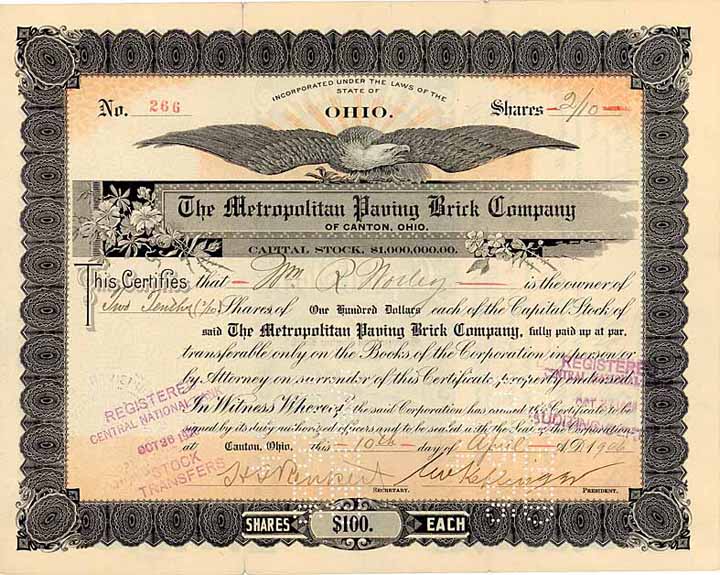 INCORPORATED UNDER THE LAWS OF THE
STATE OF
OHIO.
No. 266
Shares 2/10
The Metropolitan Paving Brick Company
OF CANTON, OHIO.
CAPITAL STOCK, $1,000,000.00.
This Certifies that Wm R. is the owner of
Two Tenths (2/10) Shares of One Hundred Dollars each of the Capital Stock of
said The Metropolitan Paving Brick Company, fully paid up at par,
transferable only on the Books of the Corporation in person or
by Attorney on surrender of this Certificate properly endorsed.
In Witness Whereof the said Corporation has caused this Certificate to be
signed by its duly authorized officers and to be sealed with the Seal of the Corporation
at Canton, Ohio, this 10th day of April A.D. 1906
SECRETARY.
PRESIDENT.
REGISTERED
CENTRAL NATIONAL
OCT 26
STOCK
TRANSFERS
REGISTERE
OCT
SHARES $100. EACH